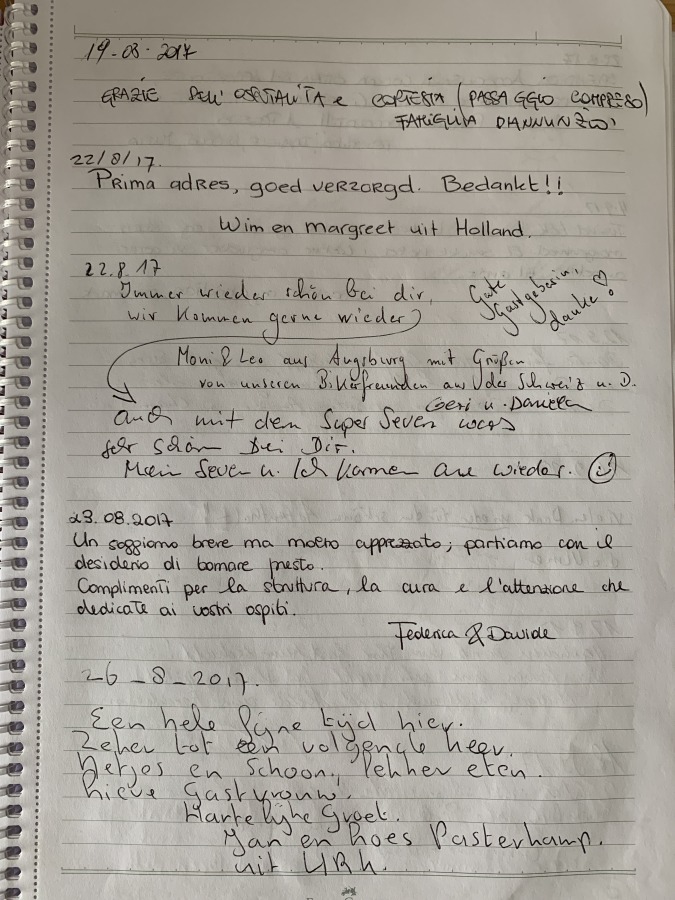 19-08-2017
GRAZIE DELL'OSPITALITA e CORTESIA (PASSAGGIO COMPRESO)
FAMIGLIA DIANNUNZIO
22/8/17.
Prima adres, goed verzorgd. Bedankt!!
Wim en margreet uit Holland.
22.8.17
Immer wieder schön bei dir,
wir kommen gerne wieder
Gute
Gastgeberin,
danke! ♡
Moni & Leo aus Augsburg mit Grüßen
von unseren Bikerfreunden aus der Schweiz u. D.
Geri u. Daniela
auch mit dem Super Seven wars
sehr schön bei Dir.
Mein Seven u. Ich kommen wieder. ☺
23.08.2017
Un soggiorno breve ma molto apprezzato; partiamo con il
desiderio di tornare presto.
Complimenti per la struttura, la cura e l'attenzione che
dedicate ai vostri ospiti.
Federica & Davide
26-8-2017.
Een hele fijne tijd hier.
Zeker tot een volgende keer.
Netjes en schoon, lekker eten.
Lieve Gastvrouw.
Hartelijke Groet.
Jan en Koos Pasterkamp.
uit URK.